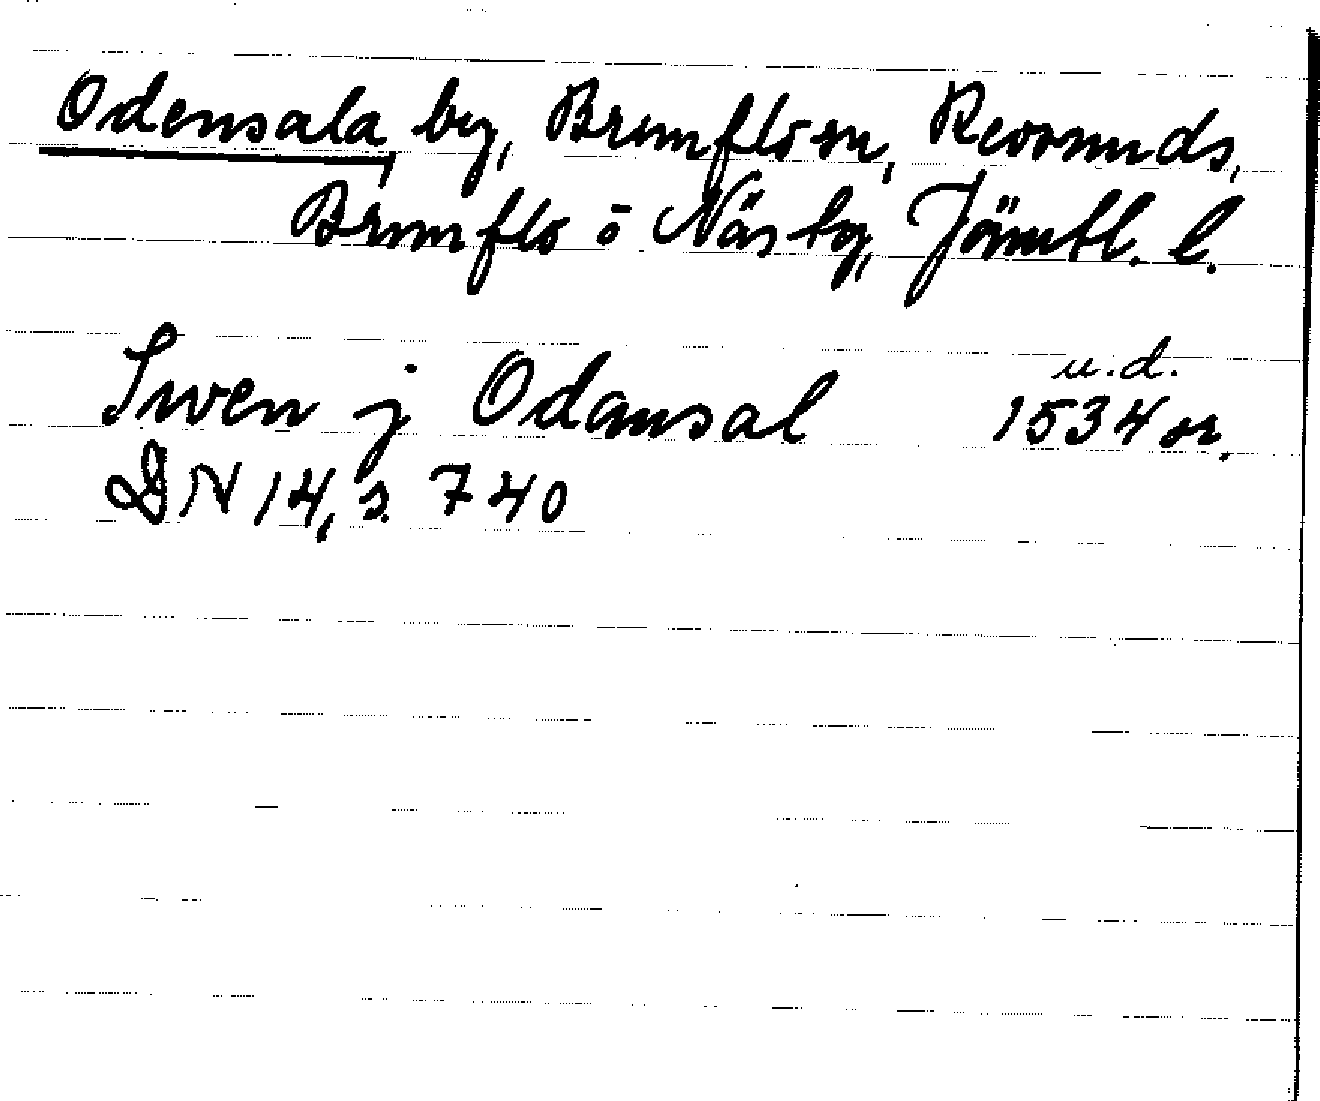 Odensala, by, Brunflo sn, Revsunds,
Brunflo o Näs tg, Jämtl. l.
u.d.
Swen j Odansal 1534 or.
DN 14, s. 740